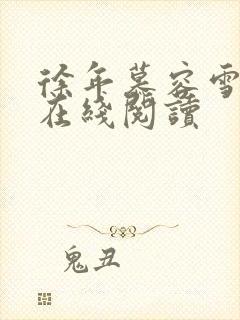 徐年慕容雪
在綫閱讀
鬼丑